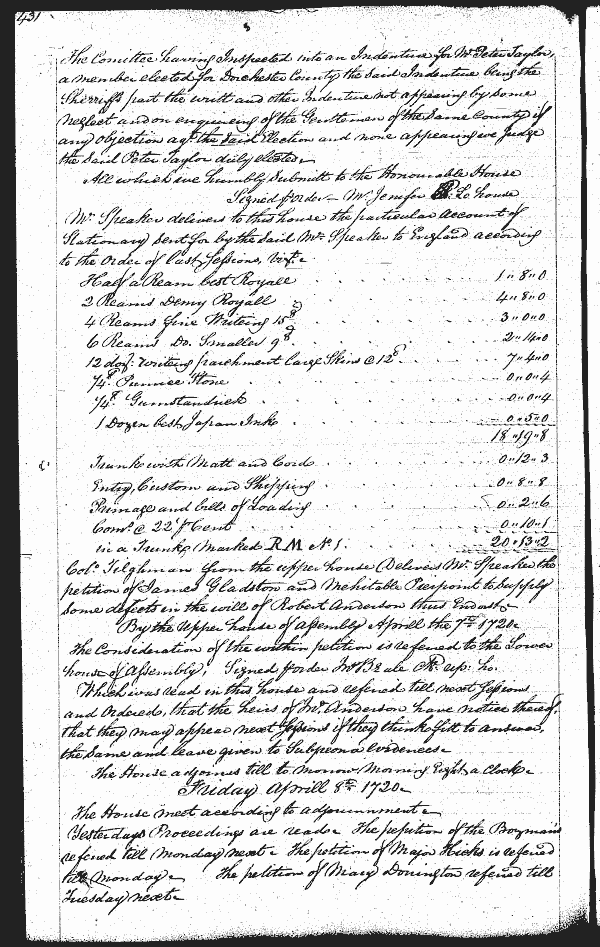 431
The Comittee having Inspected into an Indenture for Mr Peter Taylor,
a member elected for Dorchester County the said Indenture being the
Sherriffs part the writt and other Indenture not appearing by some
neglect and on enquireing of the Gentlemen of the Same County if
any objection agt. the said Election and none appearing we Judge
the Said Peter Taylor duly elected
All which we humbly Submitt to the Honourable House
Signed p order - M Jenifer Cl: Lo house
Mr. Speaker delivers to this house the particular account of
Stationary Sent for by the said Mr. Speaker to England according
to the Order of last Sessions, vizt.
Half a Ream best Royall 1 " 8 " 0
2 Reams Demy Royall 4 " 8 " 0
4 Reams fine Writeing 15s 3 " 0 " 0
6 Reams Do. Smaller 9s 2 " 14 " 0
12 doz. writing parchment large Skins @ 12s 7 " 4 " 0
1/4 Pumice Stone 0 " 0 " 4
1/4 Gumsandrick 0 " 0 " 4
1 Dozen best Japan Ink 0 " 5 " 0
18 " 19 " 8
Trunk with Matt and Cord 0 " 12 " 3
Entry, Custom and Shipping 0 " 8 " 8
Primage and bills of Loading 0 " 2 " 6
Coms. @ 22 p Cent 0 " 10 " 1
in a Trunk Marked RM No 1. 20 " 13 " 2
Colo. Tilghman from the upper house Delivers Mr. Speaker the
petition of James Gladston and Mehitable Pierpoint to Supply
some defects in the will of Robert Anderson thus Endorst
By the Upper house of Assembly Aprill the 7th 1720
The Consideration of the within petition is referred to the Lower
house of Assembly, Signed p order Beale Cl. up: ho.
Which was read in this house and referred till next Sessions
and Ordered, that the heirs of Mr. Anderson have notice thereof,
that they may appear next Sessions if they think fitt to answer,
the Same and leave given to Subpeona evidences
The House adjorns till to Morrow Morning Eight a Clock
Friday Aprill 8th 1720
The House meet according to adjournment
Yesterdays Proceedings are read The petition of the Bozmans
referred till Monday next The petition of Major Hicks is referred
till Monday The petition of Mary Donington referred till
Tuesday next